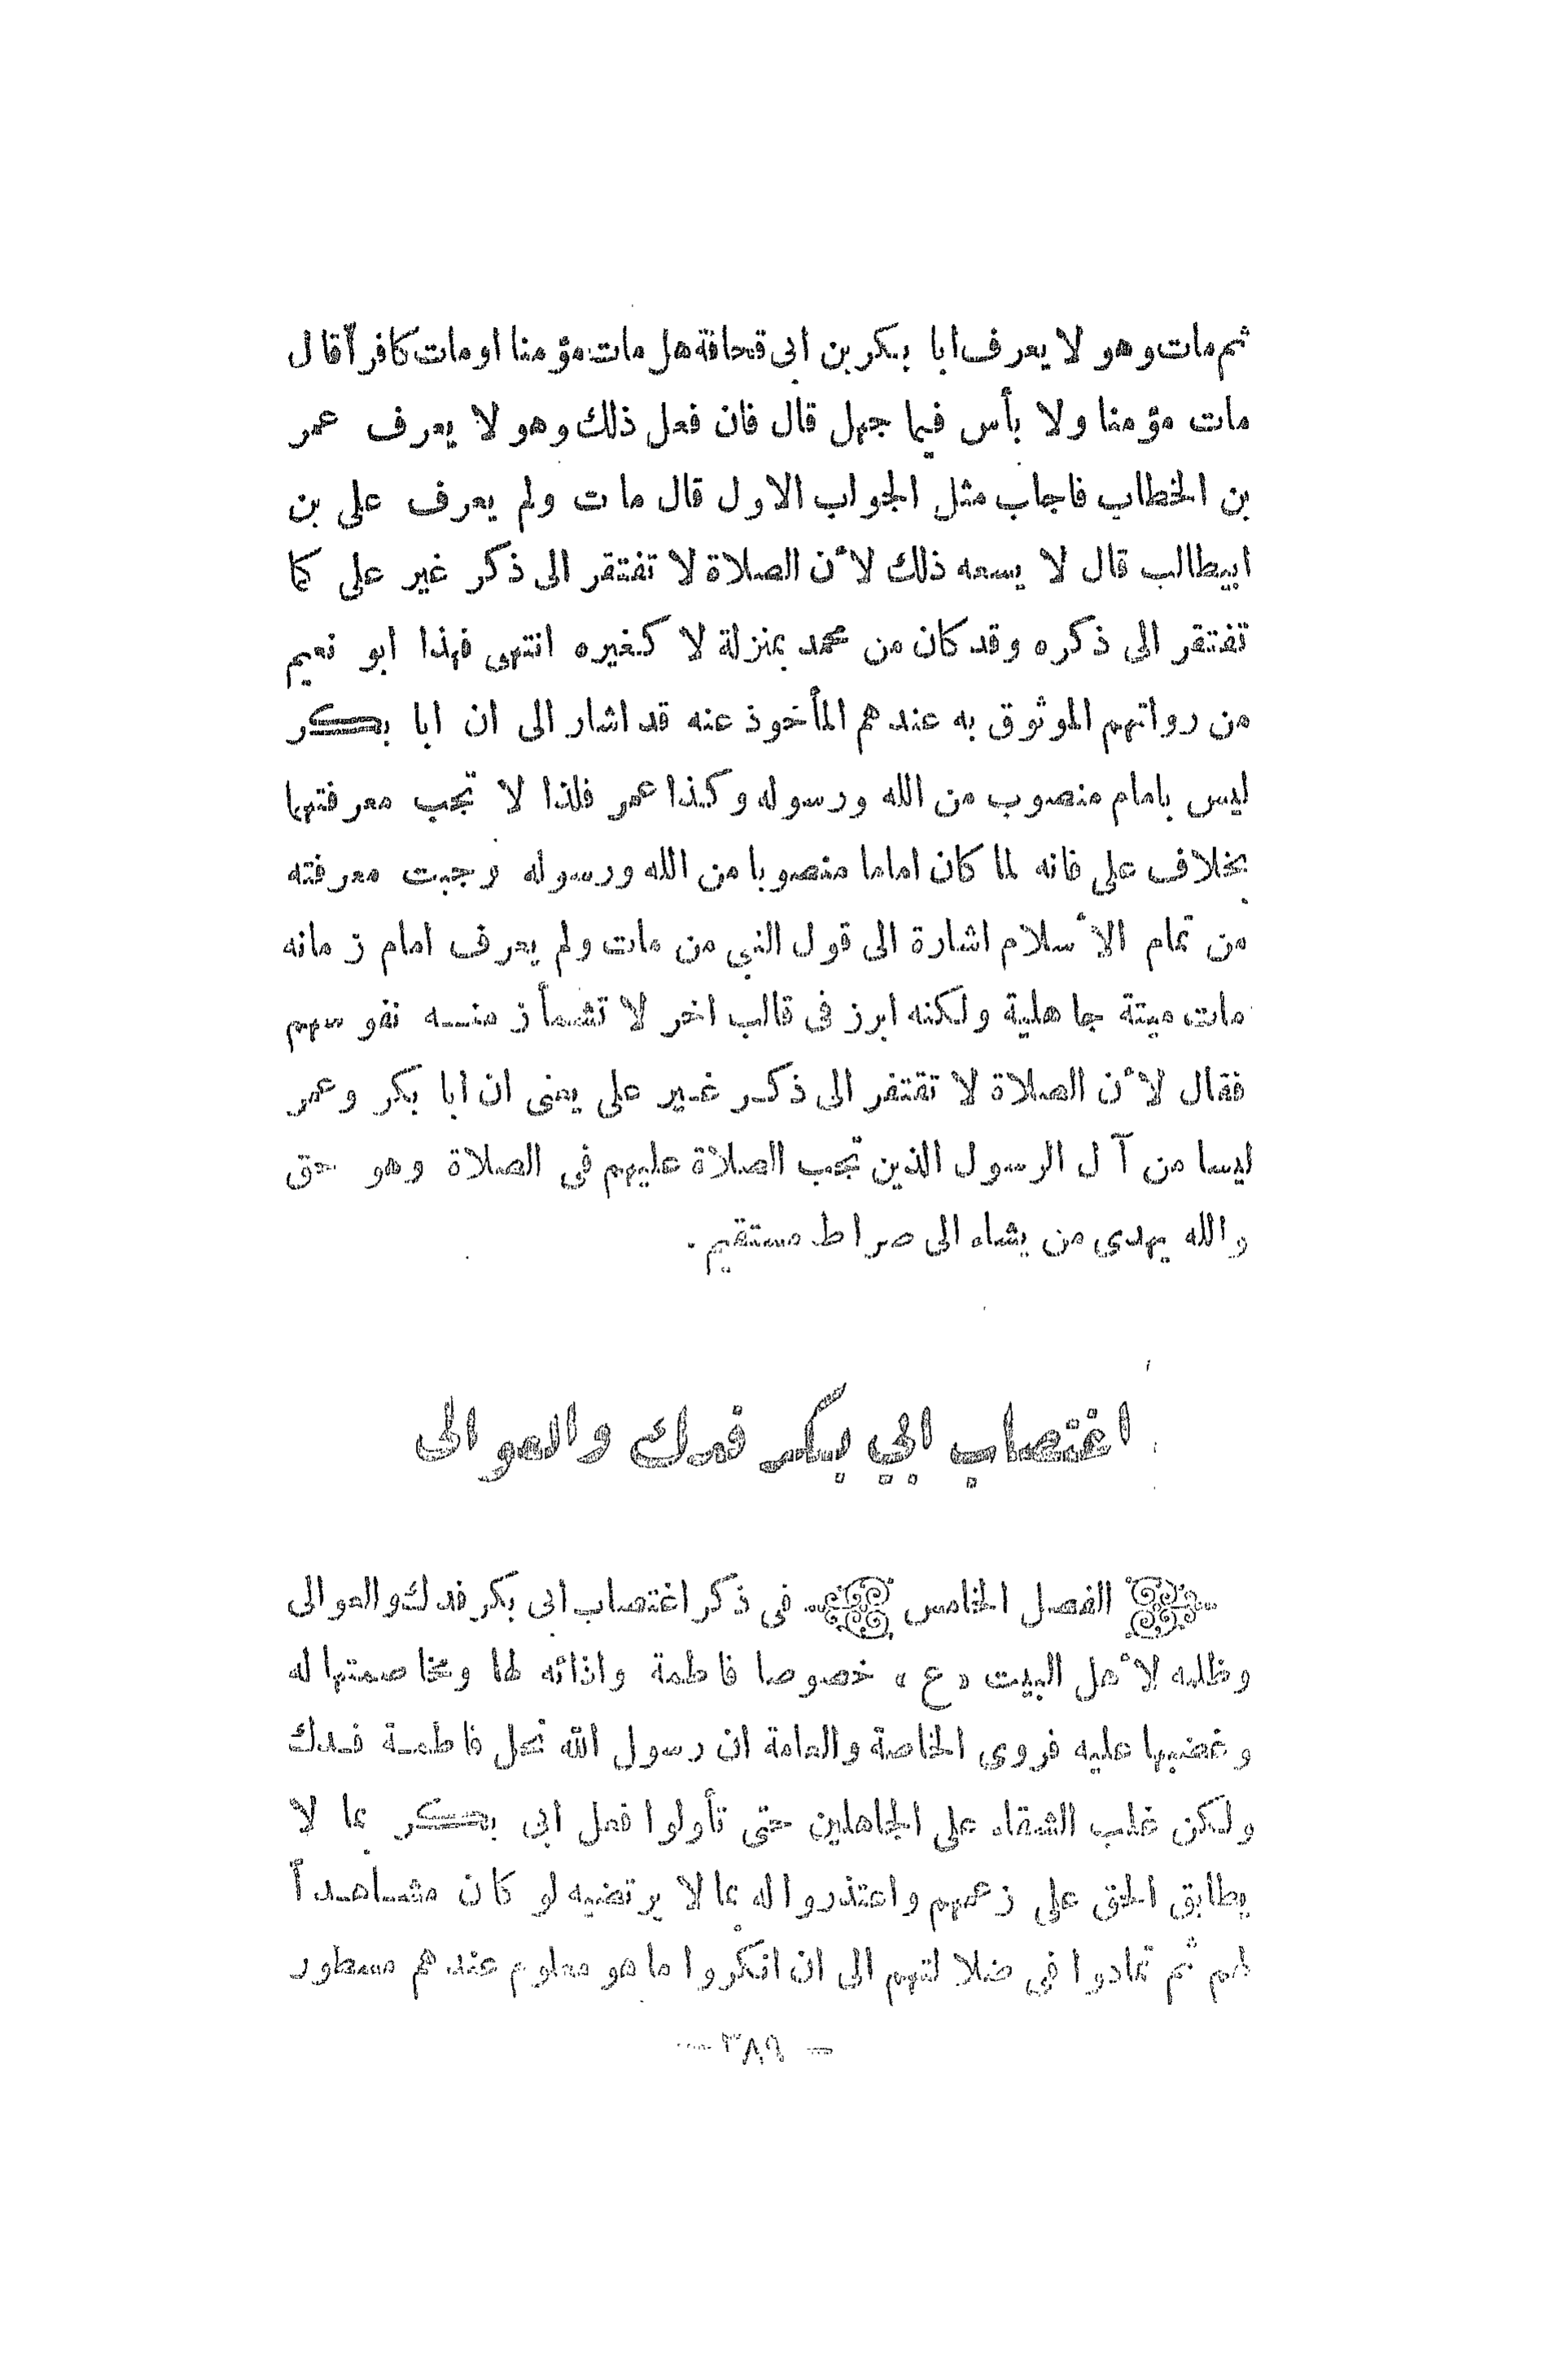 ثم مات وهو لا يعرف ابا بكر بن ابى قحافة هل مات مؤمنا او مات كافراً قال
مات مؤمنا ولا بأس فيما جهل قال فان فعل ذلك وهو لا يعرف عمر
بن الخطاب فاجاب مثل الجواب الاول قال مات ولم يعرف على بن
ابيطالب قال لا يسعه ذلك لأن الصلاة لا تفتقر الى ذكر غير على كما
تفتقر الى ذكره وقد كان من محمد بمنزلة لا كغيره انتهى فهذا ابو نعيم
من رواتهم الموثوق به عندهم المأخوذ عنه قد اشار الى ان ابا بكر
ليس بامام منصوب من الله ورسوله وكذا عمر فلذا لا تجب معرفتهما
بخلاف على فانه لما كان اماما منصوبا من الله ورسوله وجبت معرفته
من تمام الأسلام اشارة الى قول النبي من مات ولم يعرف امام زمانه
مات ميتة جاهلية ولكنه ابرز فى قالب اخر لا تشمأز منه نفوسهم
فقال لأن الصلاة لا تقتفر الى ذكر غير على يعنى ان ابا بكر وعمر
ليسا من آل الرسول الذين تجب الصلاة عليهم فى الصلاة وهو حق
والله يهدى من يشاء الى صراط مستقيم .
اغتصاب ابي بكر فدك والعوالى
الفصل الخامس فى ذكر اغتصاب ابى بكر فدك والعوالى
وظلمه لأهل البيت «ع» خصوصا فاطمة واذائه لها ومخاصمتها له
وغضبها عليه فروى الخاصة والعامة ان رسول الله نحل فاطمة فدك
ولكن غلب الشقاء على الجاهلين حتى تأولوا فعل ابى بكر بما لا
يطابق الحق على زعمهم واعتذروا له بما لا يرتضيه لو كان مشاهداً
لهم ثم تمادوا فى ضلالتهم الى ان انكروا ما هو معلوم عندهم مسطور
— ٣٨٩ —